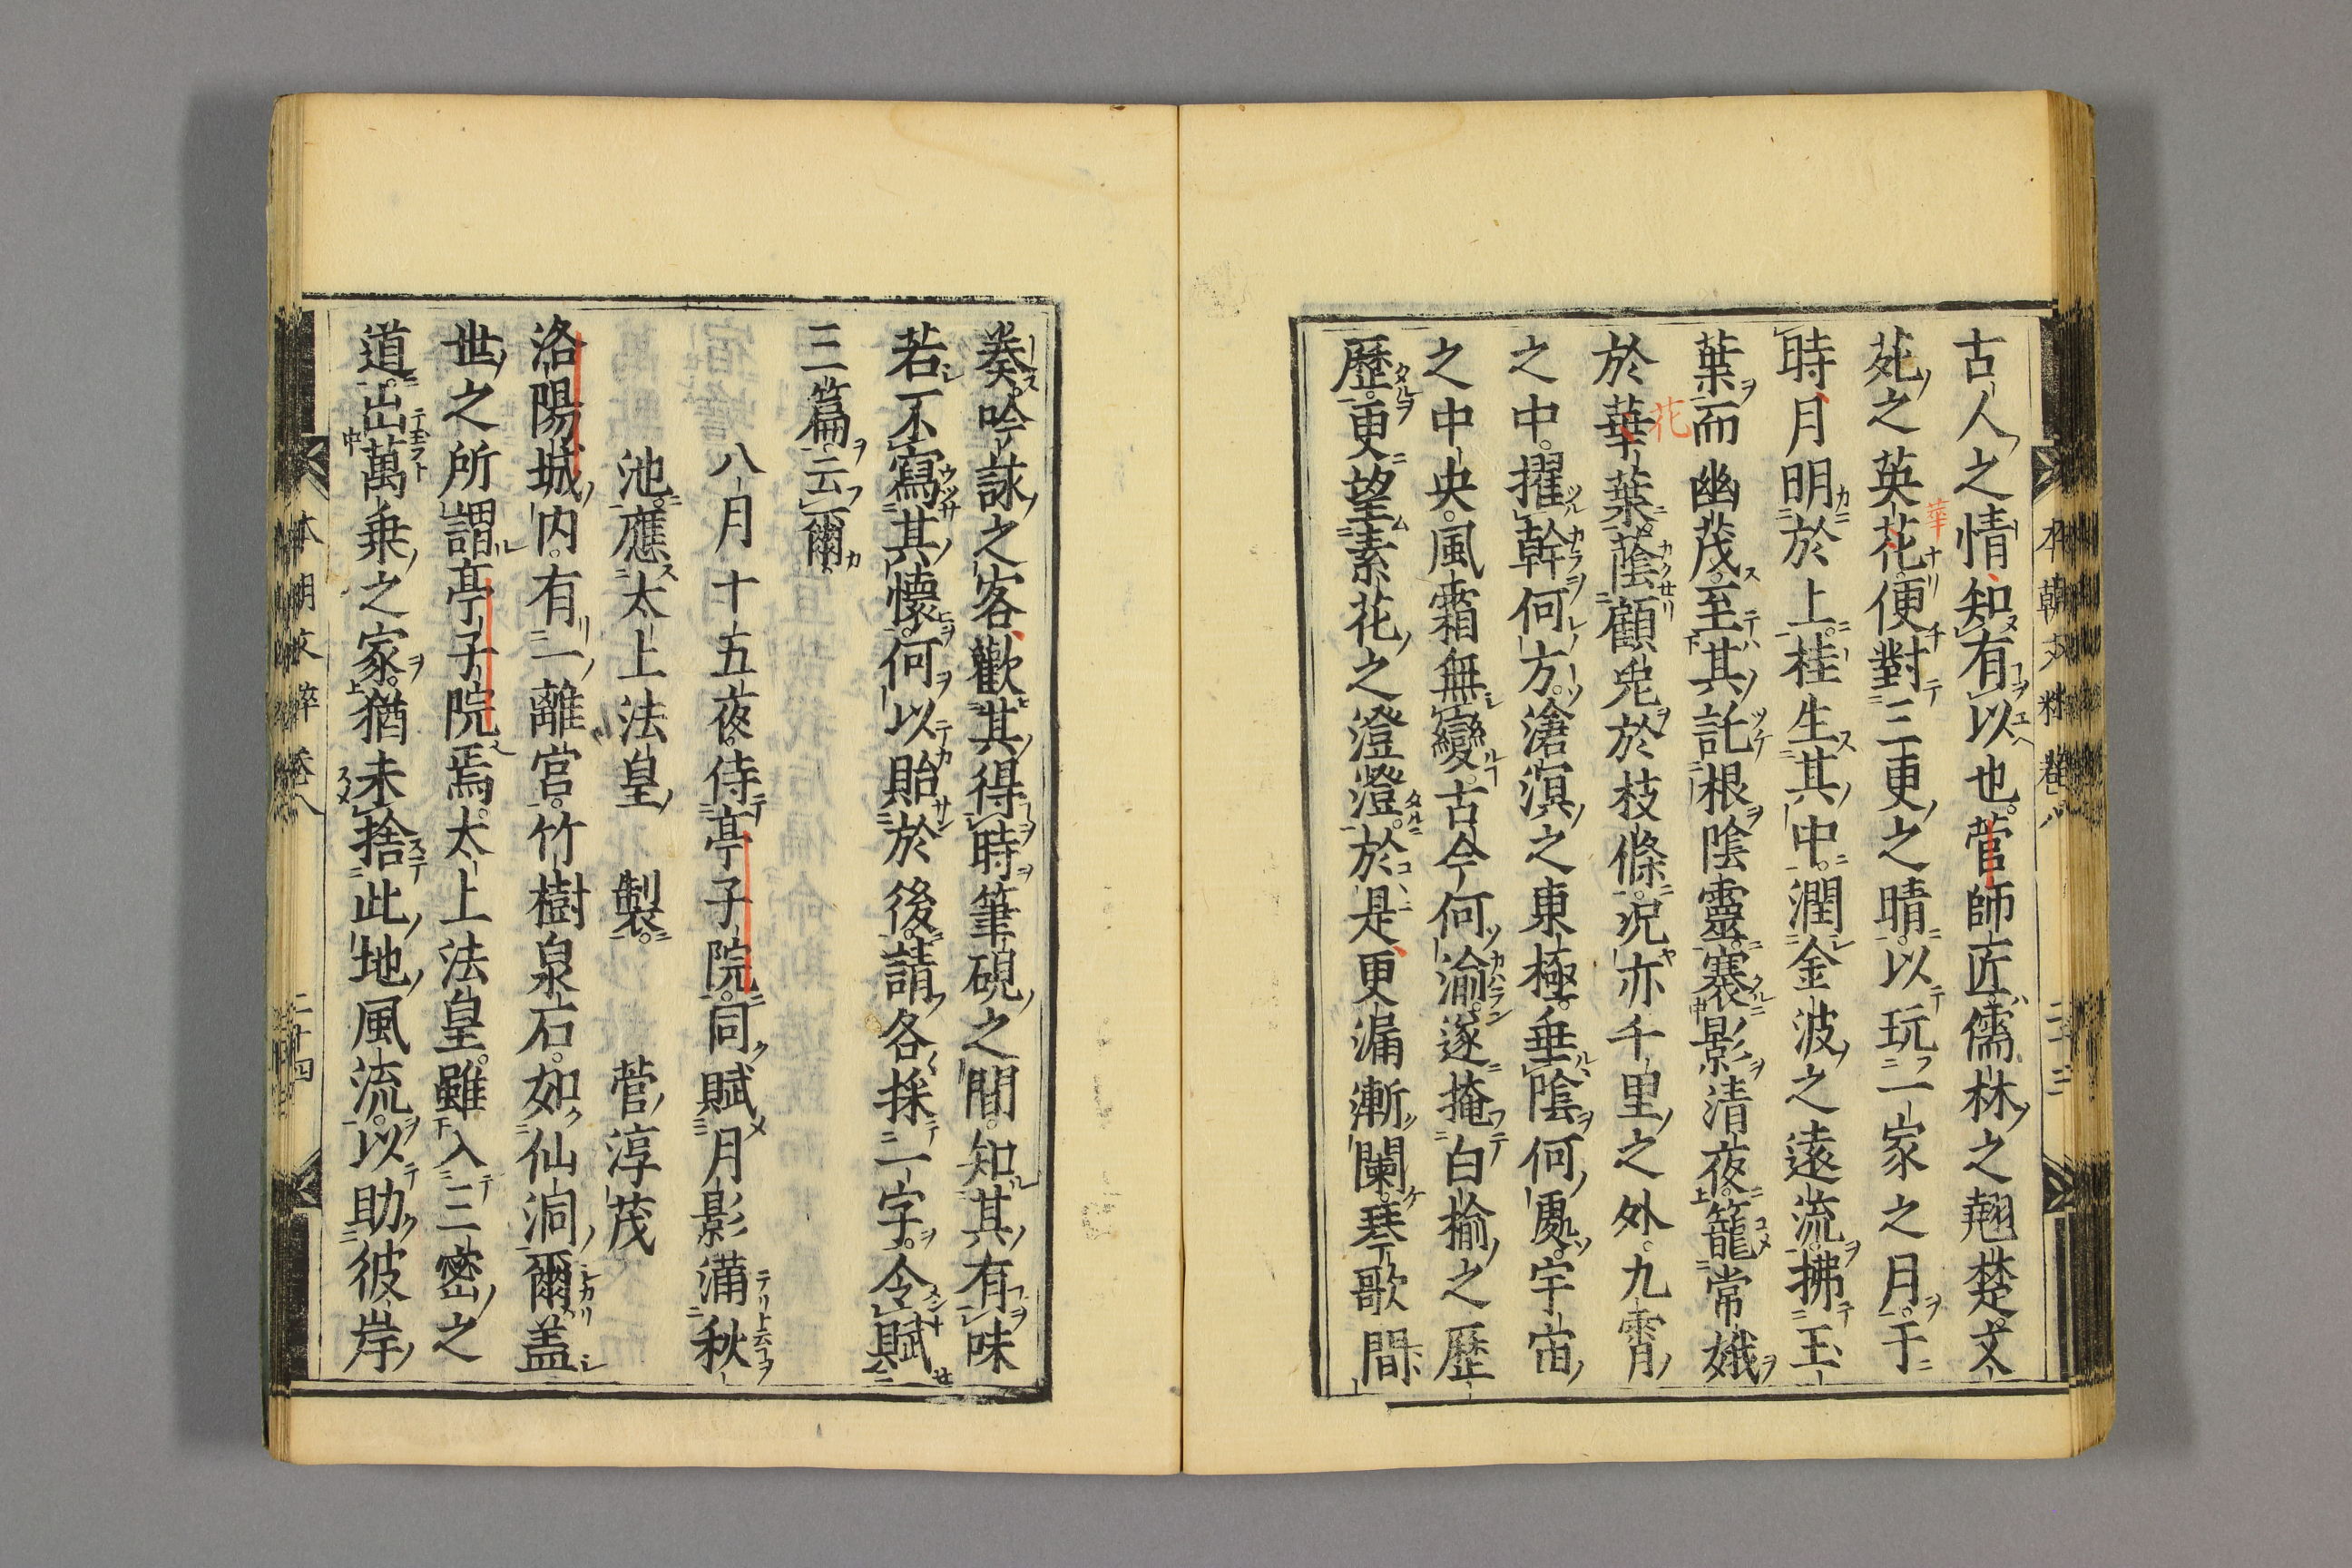 古人之情知有以也菅師匠儒林之翹楚文
苑之英花便對三更之晴以玩一家之月于
時月明於上桂生其中潤金波之遠流拂玉
葉而幽茂至其託根陰靈褰影清夜籠常娥
於華葉蔭顧兎於枝條况亦千里之外九霄
之中擢幹何方滄溟之東極垂陰何處宇宙
之中央風霜無變古今何渝遂掩白榆之歷
歷更望素花之澄澄於是更漏漸闌琴歌間
奏吟詠之客歡其得時筆硯之間知其有味
若不寫其懷何以貽於後請各採一字令賦
三篇云爾
八月十五夜侍亭子院同賦月影滿秋
池應太上法皇 製 菅淳茂
洛陽城内有一離宮竹樹泉石如仙洞爾盖
世之所謂亭子院焉太上法皇雖入三密之
道出萬乗之家猶未捨此地風流以助彼岸
本朝文粹卷八 二十四